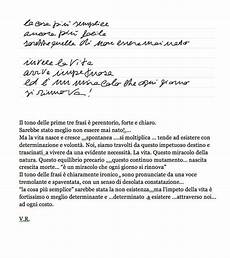 la cosa più semplice
ancora più facile
sarebbe quella di non essere mai nato
invece la vita
arriva impetuosa
ed è un miracolo che ogni giorno
si rinnova!
Il tono delle prime tre frasi è perentorio, forte e chiaro.
Sarebbe stato meglio non essere mai nato!,...
Ma la vita nasce e cresce ,,,spontanea ....si moltiplica ... tende ad esistere con
determinazione e volontà. Noi, siamo travolti da questo impetuoso destino e
trascinati ,a vivere da una evidente necessità. La vita. Questo miracolo della
vita. Questo equilibrio precario ,,,,questo continuo mutamento... nascita
crescita morte... "è un miracolo che ogni giorno si rinova"
I due concetti chiaramente espressi, sono pronunciati da una voce
tremolante e spaventata, con un senso di desolata constatazione...
"la cosa più semplice" sarebbe stata la non esistenza,,,,ma l'impeto della vita è
fortissimo o meglio ... determinato a esistere ..attraverso noi...
ad ogni costo.
V.R.